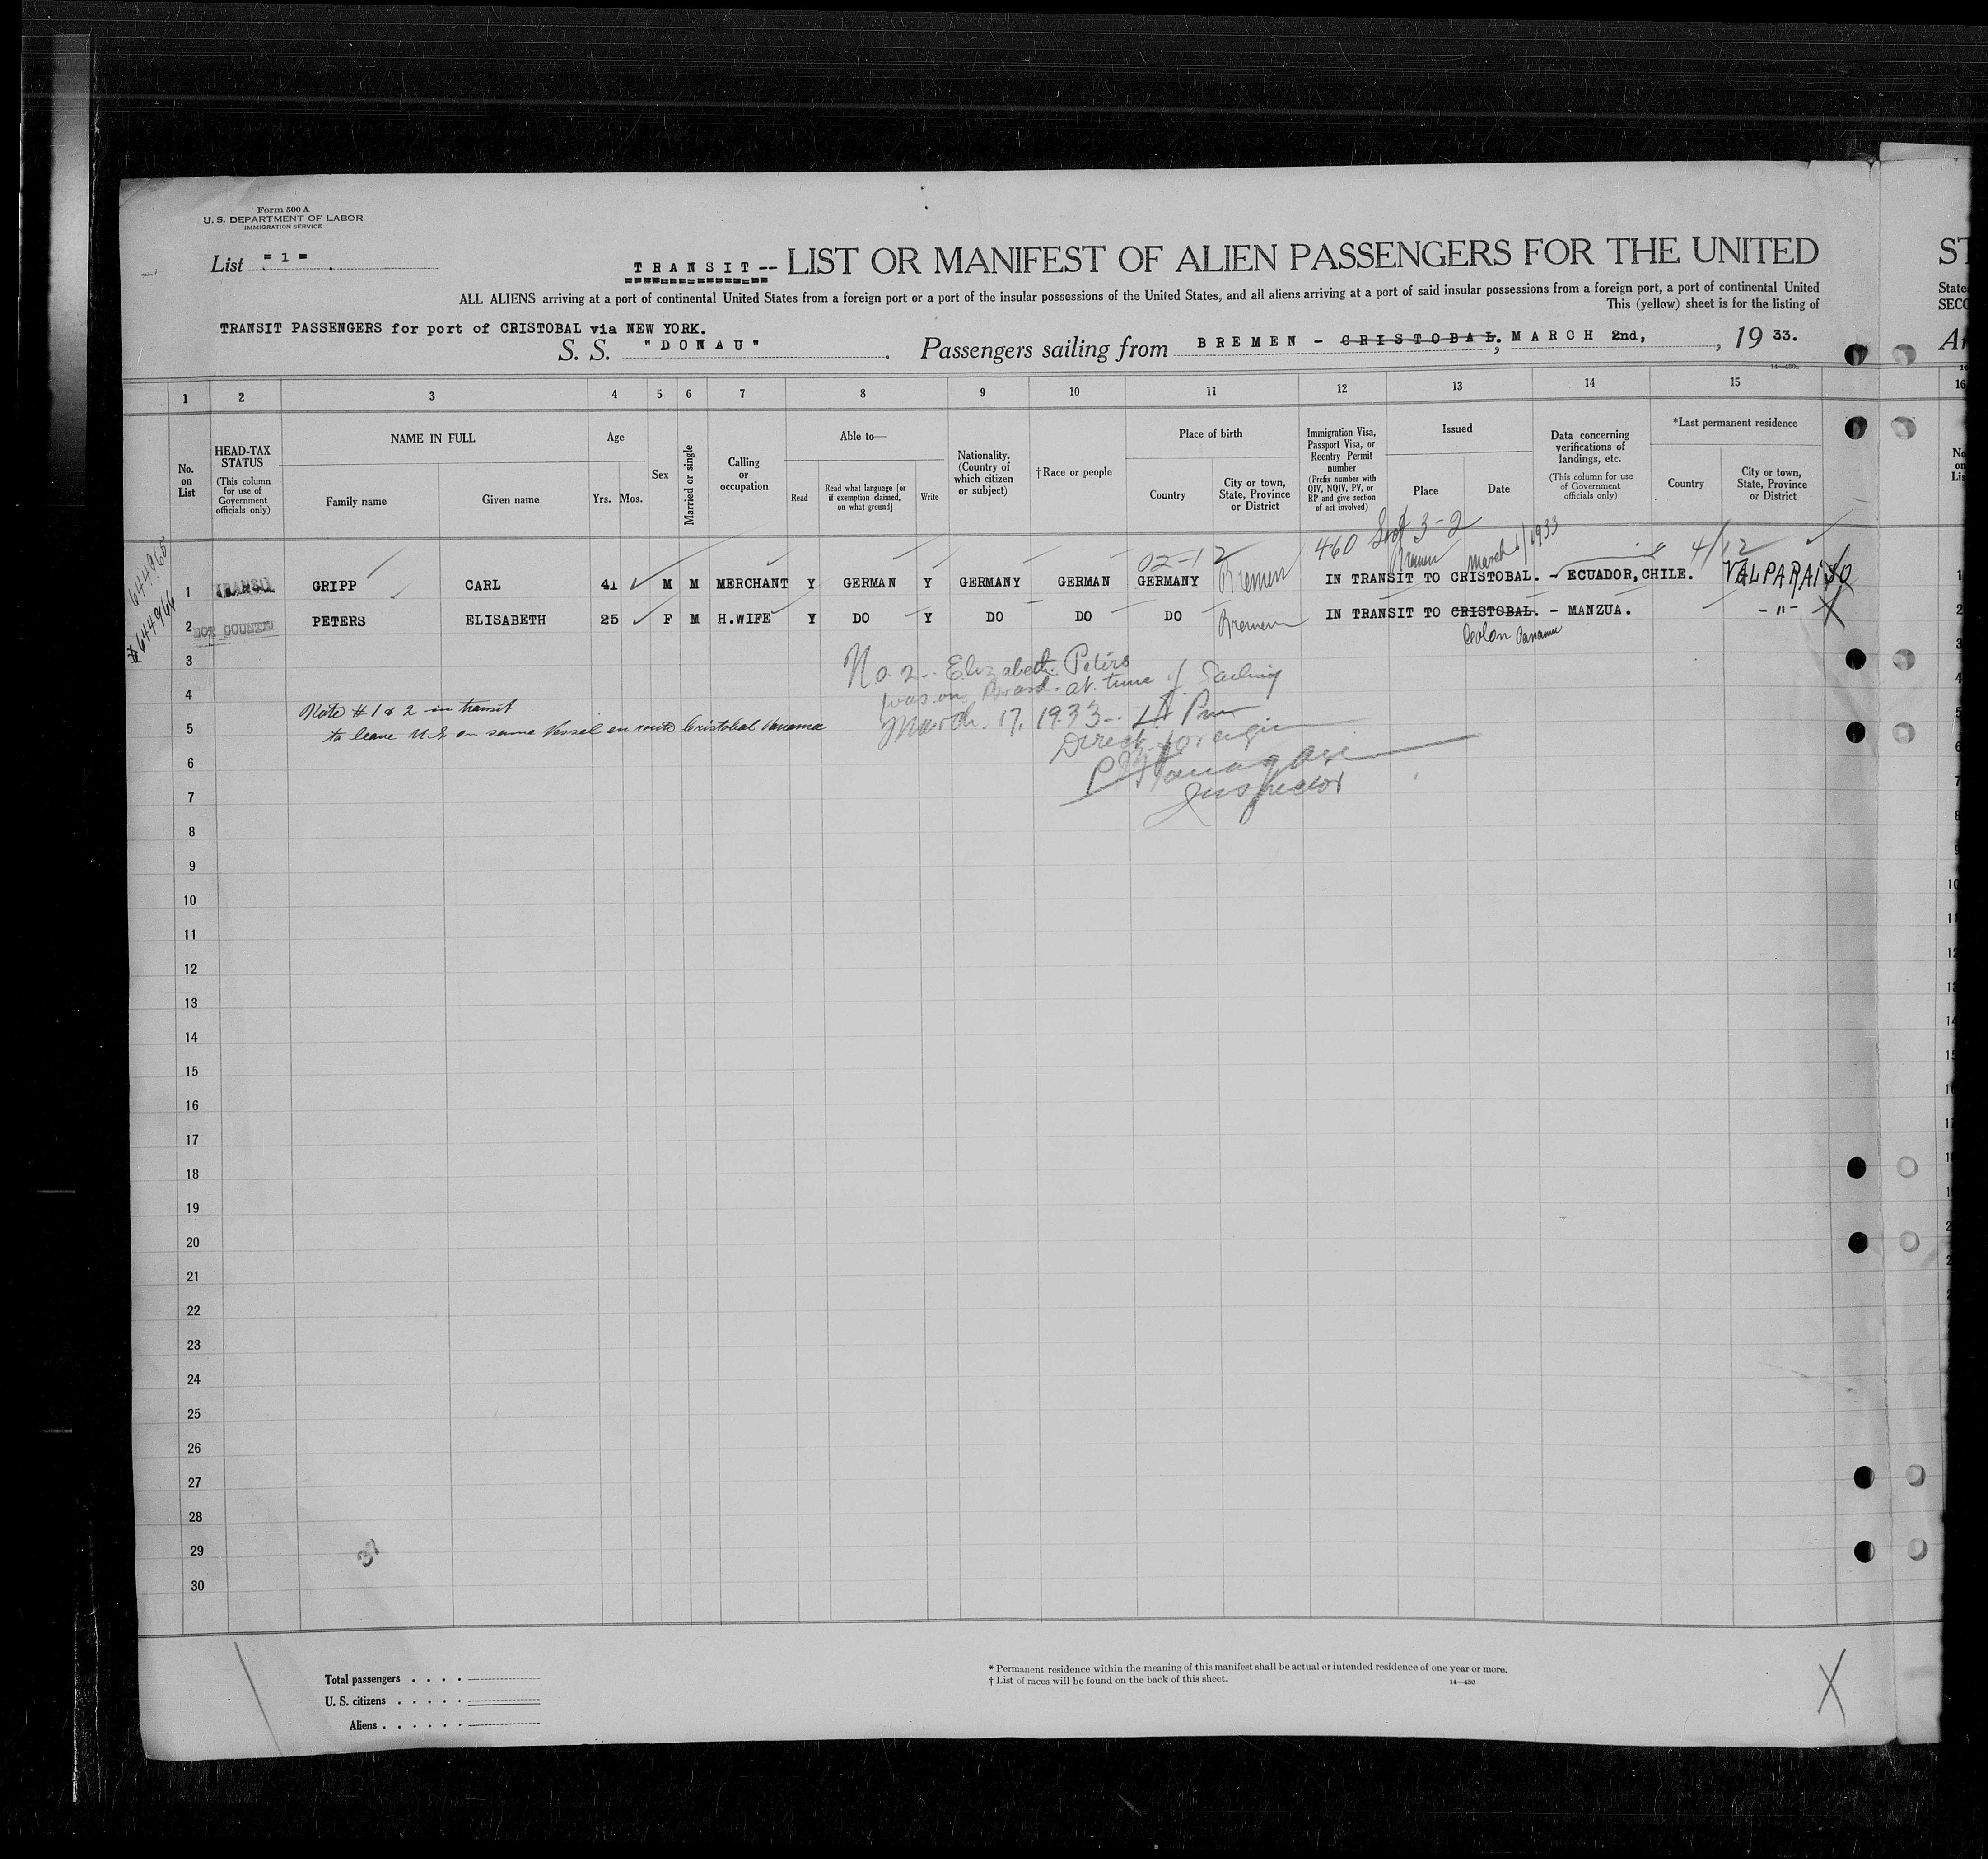 Form 500 A
U. S. DEPARTMENT OF LABOR
IMMIGRATION SERVICE
List "1"
TRANSIT -- LIST OR MANIFEST OF ALIEN PASSENGERS FOR THE UNITED ST
ALL ALIENS arriving at a port of continental United States from a foreign port or a port of the insular possessions of the United States, and all aliens arriving at a port of said insular possessions from a foreign port, a port of continental United State
This (yellow) sheet is for the listing of SECO
TRANSIT PASSENGERS for port of CRISTOBAL via NEW YORK.
S. S. "DONAU". Passengers sailing from BREMEN - CRISTOBAL., MARCH 2nd, , 19 33. Ar
14—430
1 2 3 4 5 6 7 8 9 10 11 12 13 14 15 16
No. on List
HEAD-TAX STATUS
(This column for use of Government officials only)
NAME IN FULL
Family name
Given name
Age
Yrs. Mos.
Sex
Married or single
Calling or occupation
Able to—
Read
Read what language [or if exemption claimed, on what ground]
Write
Nationality. (Country of which citizen or subject)
† Race or people
Place of birth
Country
City or town, State, Province or District
Immigration Visa, Passport Visa, or Reentry Permit number
(Prefix number with QIV, NQIV, PV, or RP and give section of act involved)
Issued
Place
Date
Data concerning verifications of landings, etc.
(This column for use of Government officials only)
*Last permanent residence
Country
City or town, State, Province or District
No on Lis
460 3-2
02-12 Bremen March 1/1933 4/12
644965
1 TRANSIT GRIPP CARL 41 M M MERCHANT Y GERMAN Y GERMANY GERMAN GERMANY Bremen IN TRANSIT TO CRISTOBAL. - ECUADOR, CHILE. VALPARAISO 1
644966
2 NOT COUNTED PETERS ELISABETH 25 F M H.WIFE Y DO Y DO DO DO Bremen IN TRANSIT TO CRISTOBAL. - MANZUA. -"- 2
Colon Panama
3
No. 2 - Elizabeth Peters
was on Board at time of Sailing
4
Note # 1 & 2 in transit
March 17, 1933
5
to leave U.S. on same Vessel en route Cristobal Panama
Direct foreign
6
Inspector
7
8
9
10
11
12
13
14
15
16
17
18
19
20
21
22
23
24
25
26
27
28
29
37
30
Total passengers . . . .
U. S. citizens . . . . .
Aliens . . . . . .
* Permanent residence within the meaning of this manifest shall be actual or intended residence of one year or more.
† List of races will be found on the back of this sheet.
14—430